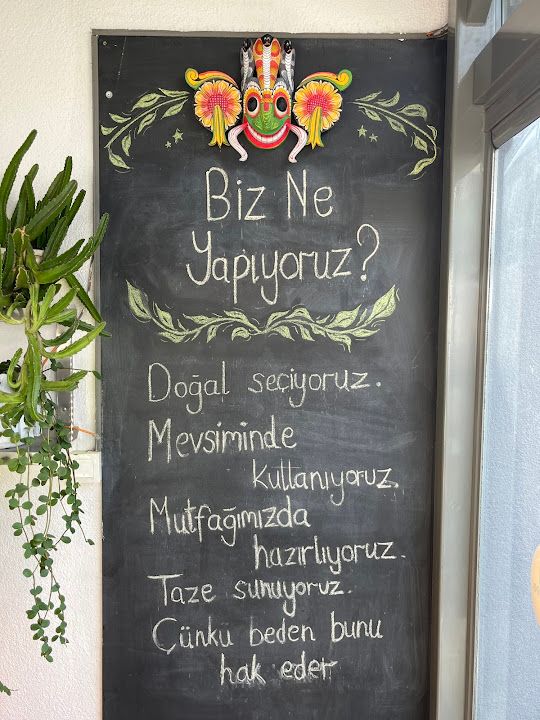 Biz Ne
Yapıyoruz?
Doğal seçiyoruz.
Mevsiminde
kullanıyoruz.
Mutfağımızda
hazırlıyoruz.
Taze sunuyoruz.
Çünkü beden bunu
hak eder